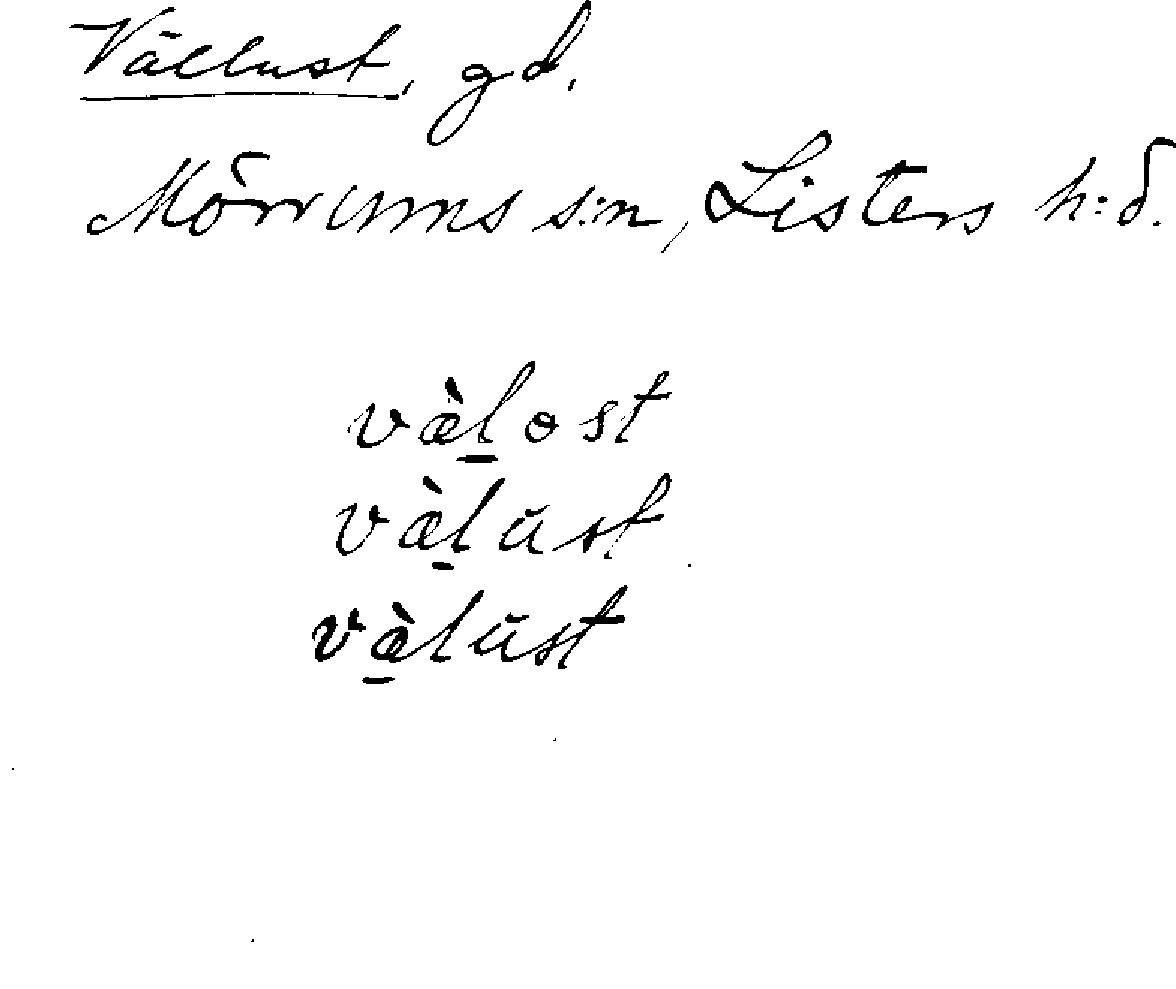 Vällust, gd.
Mörrums s:n, Listers h:d.
væ̀l̲ost
væ̲̀lŭst
væ̲̀lŭst